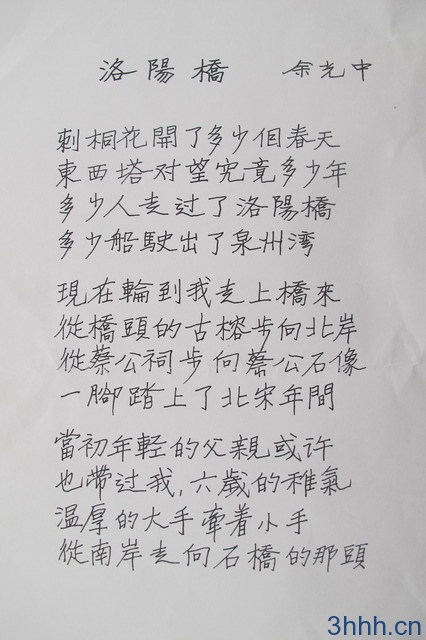 洛陽橋 余光中
刺桐花開了多少個春天
東西塔对望究竟多少年
多少人走过了洛陽橋
多少船駛出了泉州湾
現在輪到我走上橋來
從橋頭的古榕步向北岸
從蔡公祠步向蔡公石像
一腳踏上了北宋年間
當初年轻的父親或许
也带过我,六歲的稚氣
温厚的大手牽着小手
從南岸走向石橋的那頭
3hhh.cn